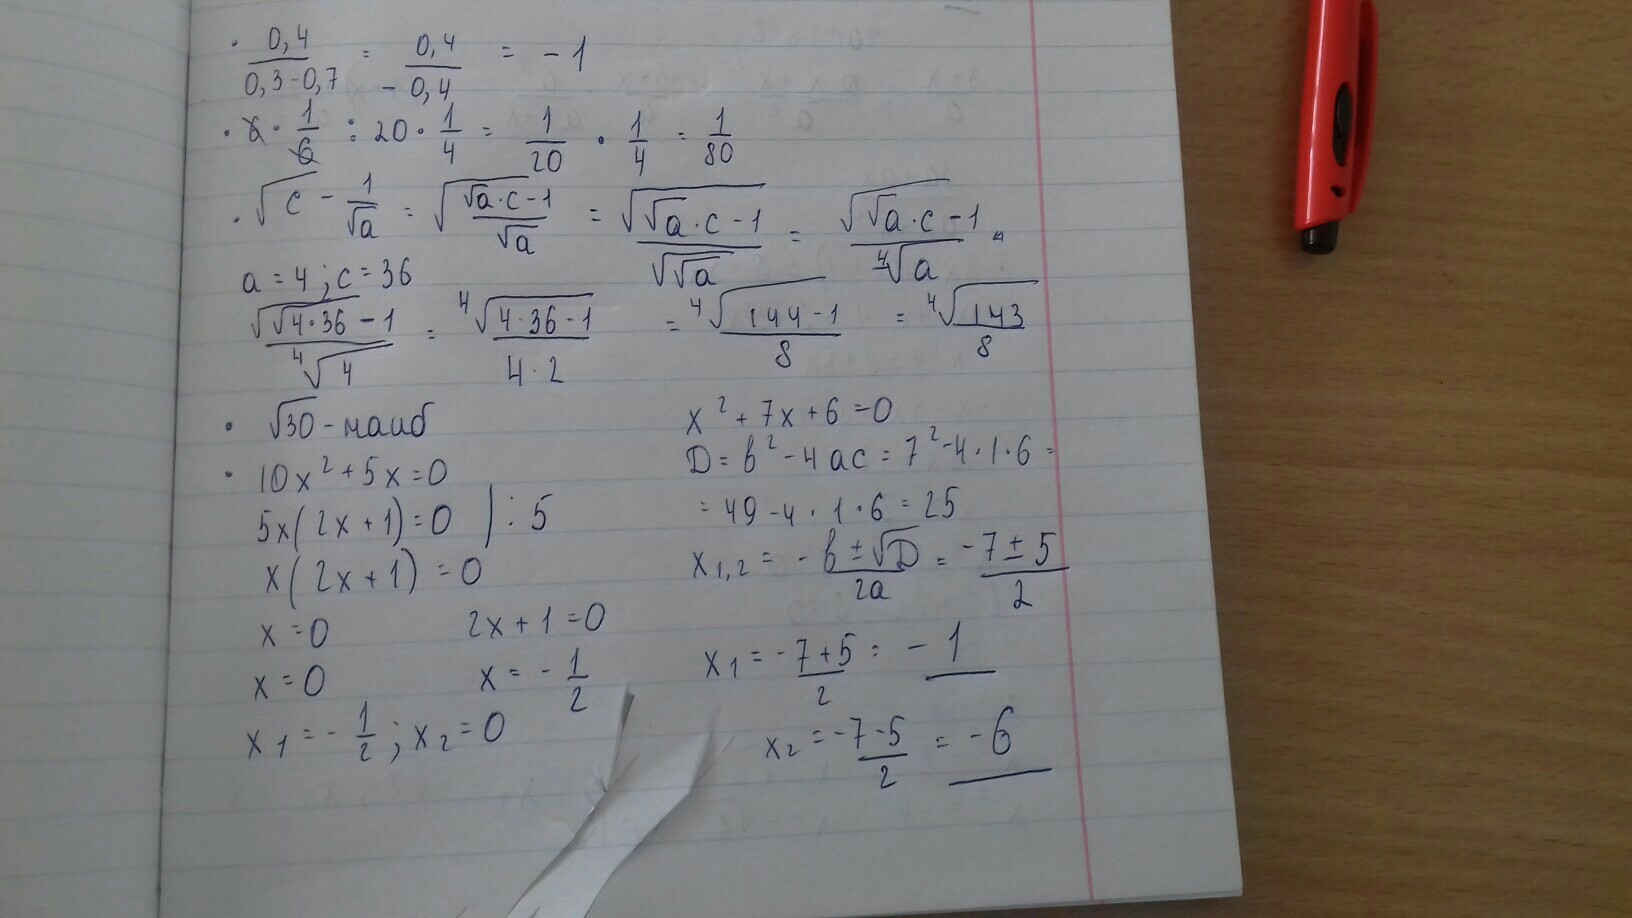 · 0,4 / 0,3-0,7 = 0,4 / -0,4 = -1
· 6 · 1/6 : 20 · 1/4 = 1/20 · 1/4 = 1/80
· √c - 1/√a = √(√a·c-1 / √a) = √(√a·c-1) / √√a = √(√a·c-1) / ⁴√a =
a = 4 ; c = 36
√(√4·36-1) / ⁴√4 = ⁴√(4·36-1) / 4·2 = ⁴√(144-1) / 8 = ⁴√143 / 8
· √30 - наиб
· 10x² + 5x = 0
5x(2x+1) = 0 | : 5
x(2x+1) = 0
x = 0 2x+1 = 0
x = 0 x = -1/2
x₁ = -1/2 ; x₂ = 0
x² + 7x + 6 = 0
D = b² - 4ac = 7² - 4·1·6 =
= 49 - 4·1·6 = 25
x₁,₂ = -b ± √D / 2a = -7 ± 5 / 2
x₁ = -7+5 / 2 = -1
x₂ = -7-5 / 2 = -6